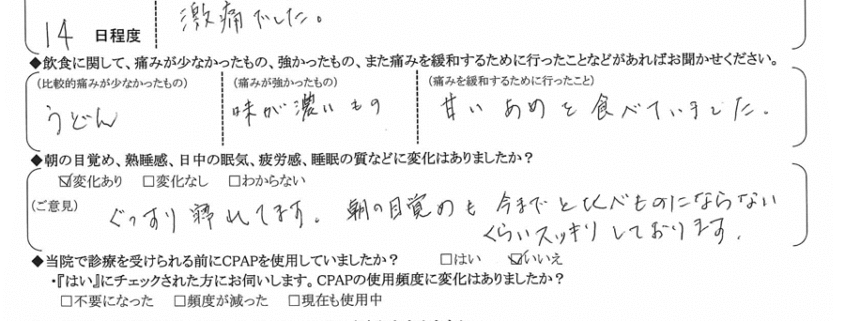 激痛でした。
14 日程度
◆飲食に関して、痛みが少なかったもの、強かったもの、また痛みを緩和するために行ったことなどがあればお聞かせください。
(比較的痛みが少なかったもの) (痛みが強かったもの) (痛みを緩和するために行ったこと)
うどん 味が濃いもの 甘いあめを食べていました。
◆朝の目覚め、熟睡感、日中の眠気、疲労感、睡眠の質などに変化はありましたか?
☑変化あり □変化なし □わからない
(ご意見) ぐっすり寝れてます。朝の目覚めも今までと比べものにならない
くらいスッキリしております。
◆当院で診療を受けられる前にCPAPを使用していましたか? □はい ☑いいえ
・『はい』にチェックされた方にお伺いします。CPAPの使用頻度に変化はありましたか?
□不要になった □頻度が減った □現在も使用中